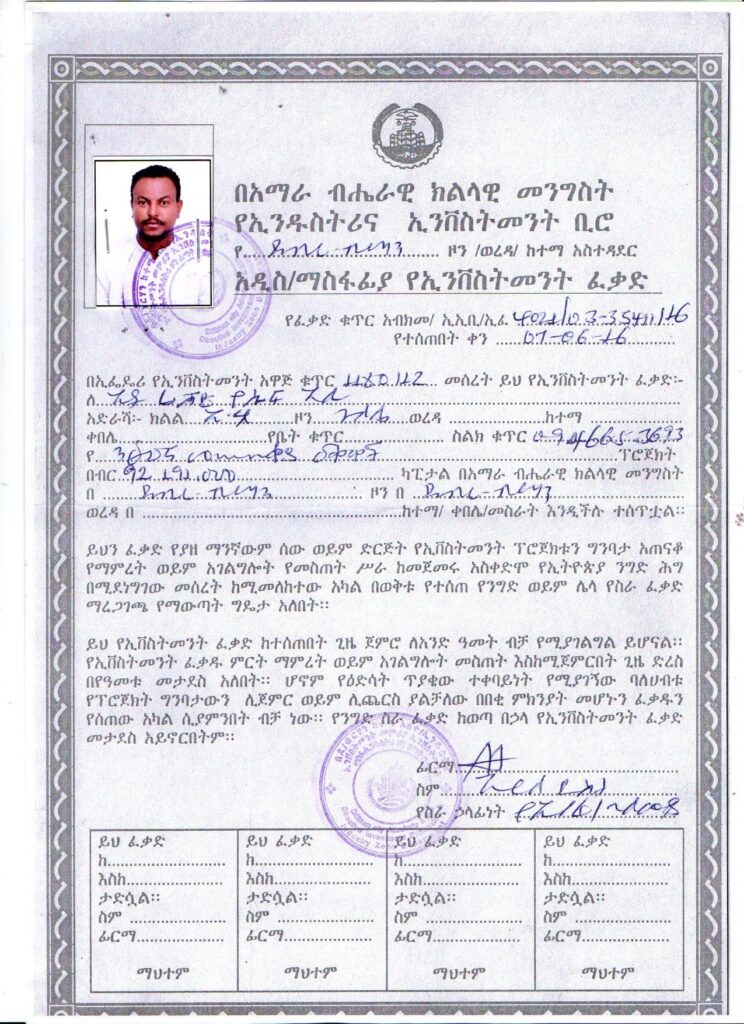 በአማራ ብሔራዊ ክልላዊ መንግስት
የኢንዱስትሪና ኢንቨስትመንት ቢሮ
የ ዞን /ወረዳ/ ከተማ አስተዳደር
አዲስ/ማስፋፊያ የኢንቨስትመንት ፈቃድ
የፈቃድ ቁጥር አብክመ/ ኢኢቢ/ኢፈ
የተሰጠበት ቀን 07-06-16
በኢፌዴሪ የኢንቨስትመንት አዋጅ ቁጥር መሰረት ይህ የኢንቨስትመንት ፈቃድ፡-
ለ
አድራሻ፡- ክልል ዞን ወረዳ ከተማ
ቀበሌ የቤት ቁጥር ስልክ ቁጥር
የ ፕሮጀክት
በብር 92,191,000 ካፒታል በአማራ ብሔራዊ ክልላዊ መንግስት
በ ዞን በ
ወረዳ በ ከተማ/ ቀበሌ/መስራት እንዲችሉ ተሰጥቷል፡፡
ይህን ፈቃድ የያዘ ማንኛውም ሰው ወይም ድርጅት የኢቨስትመንት ፕሮጀክቱን ግንባታ አጠናቆ
የማምረት ወይም አገልግሎት የመስጠት ሥራ ከመጀመሩ አስቀድሞ የኢትዮጵያ ንግድ ሕግ
በሚደነግገው መሰረት ከሚመለከተው አካል በወቅቱ የተሰጠ የንግድ ወይም ሌላ የስራ ፈቃድ
ማረጋገጫ የማውጣት ግዴታ አለበት፡፡
ይህ የኢቨስትመንት ፈቃድ ከተሰጠበት ጊዜ ጀምሮ ለአንድ ዓመት ብቻ የሚያገልግል ይሆናል፡፡
የኢቨስትመንት ፈቃዱ ምርት ማምረት ወይም አገልግሎት መስጠት እስከሚጀምርበት ጊዜ ድረስ
በየዓመቱ መታደስ አለበት፡፡ ሆኖም የዕድሳት ጥያቄው ተቀባይነት የሚያገኝው ባለሀብቱ
የፕሮጀክት ግንባታውን ሊጀምር ወይም ሊጨርስ ያልቻለው በበቂ ምክንያት መሆኑን ፈቃዱን
የሰጠው አካል ሲያምንበት ብቻ ነው፡፡ የንግድ ስራ ፈቃድ ከወጣ በኃላ የኢንቨስትመንት ፈቃድ
መታደስ አይኖርበትም፡፡
ፊርማ
ስም
የስራ ኃላፊነት
ይህ ፈቃድ ይህ ፈቃድ ይህ ፈቃድ ይህ ፈቃድ
ከ ከ ከ ከ
እስከ እስከ እስከ እስከ
ታድሷል፡፡ ታድሷል፡፡ ታድሷል፡፡ ታድሷል፡፡
ስም ስም ስም ስም
ፊርማ ፊርማ ፊርማ ፊርማ
ማህተም ማህተም ማህተም ማህተም